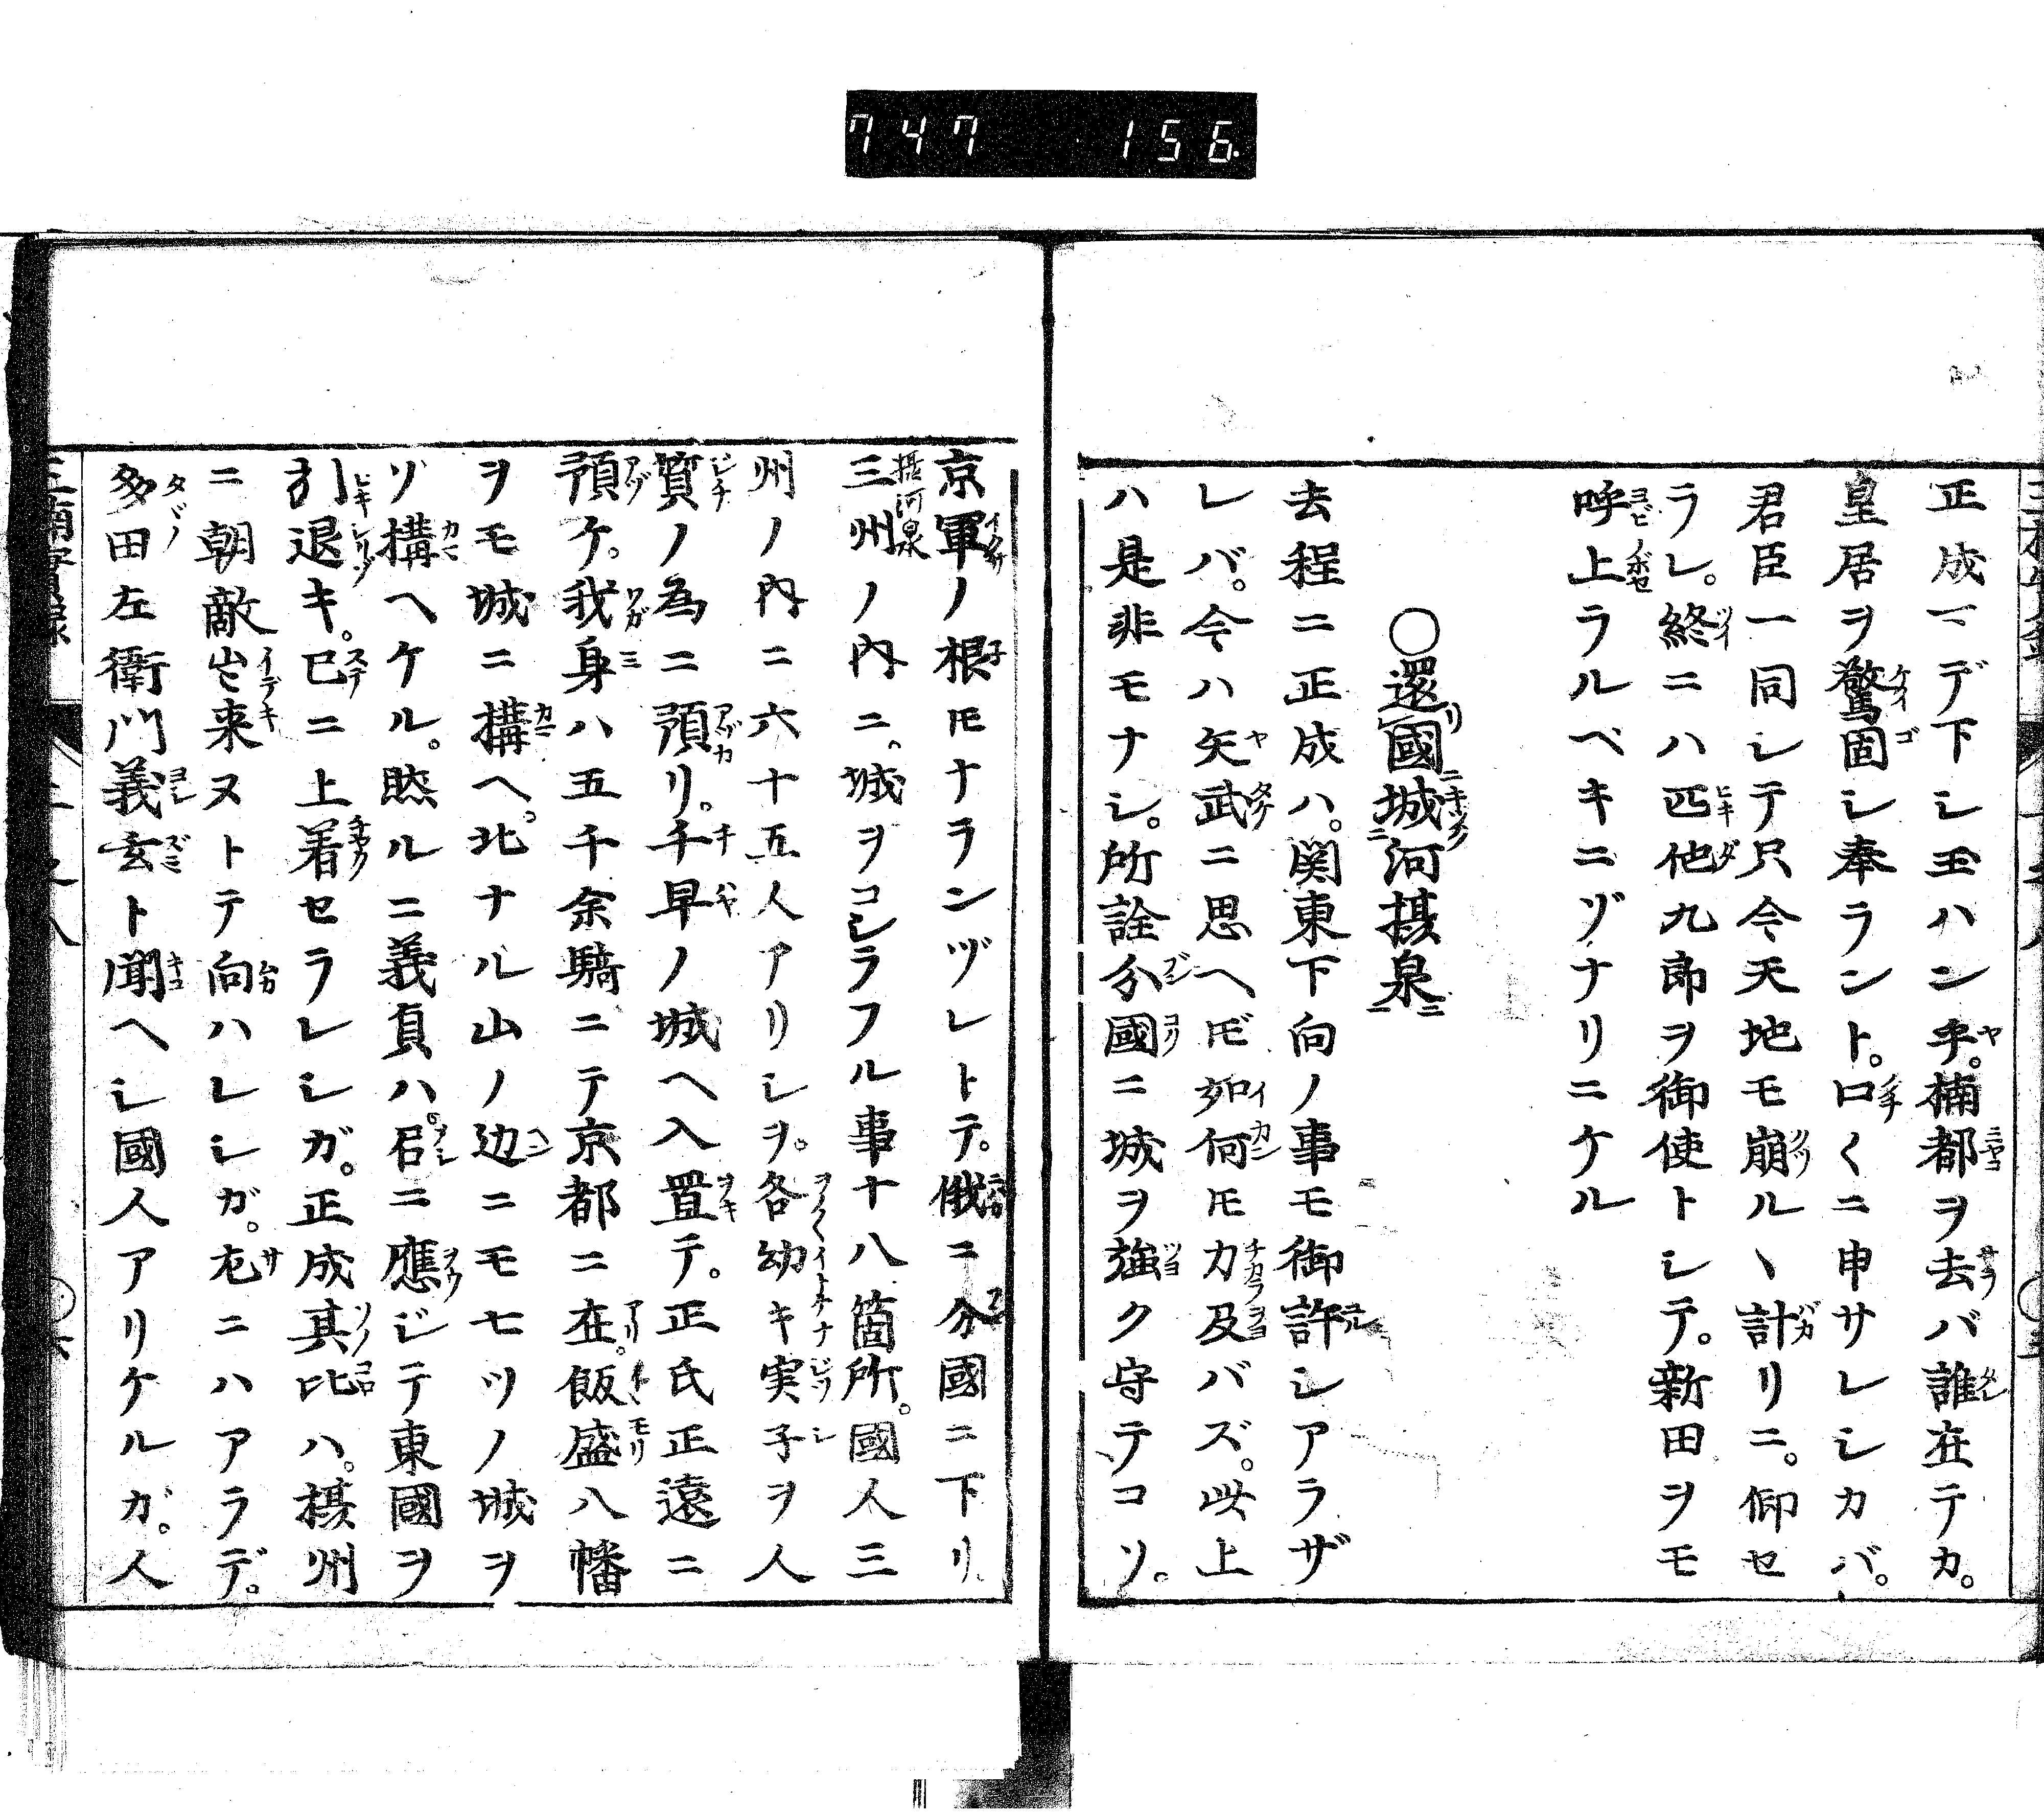 747 156
正成マデ下シ玉ハン乎。楠都ヲ去バ誰在テカ。
皇居ヲ驚固シ奉ラント。口〱ニ申サレシカバ。
君臣一同シテ只今天地モ崩ルヽ計リニ。仰セ
ラレ。終ニハ匹他九郎ヲ御使トシテ。新田ヲモ
呼上ラルベキニゾナリニケル
〇還國城河摂泉
去程ニ正成ハ。関東下向ノ事モ御許シアラザ
レバ。今ハ矢武ニ思ヘ𪜈如何𪜈力及バズ。此上
ハ是非モナシ。所詮分國ニ城ヲ強ク守テコソ。
京軍ノ根𪜈ナランヅレトテ。俄ニ分國ニ下リ
三州ノ内ニ。城ヲコシラフル事十八箇所。國人三
州ノ内ニ六十五人アリシヲ。各幼キ実子ヲ人
質ノ為ニ預リ。千早ノ城ヘ入置テ。正氏正遠ニ
預ケ。我身ハ五千余騎ニテ京都ニ在。飯盛八幡
ヲモ城ニ構ヘ。北ナル山ノ辺ニモ七ツノ城ヲ
ゾ構ヘケル。然ルニ義貞ハ。召ニ應ジテ東國ヲ
引退キ。已ニ上着セラレシガ。正成其比ハ。摂州
ニ朝敵出来ヌトテ向ハレシガ。左ニハアラデ。
多田左衛門義玄ト聞ヘシ國人アリケルガ。人